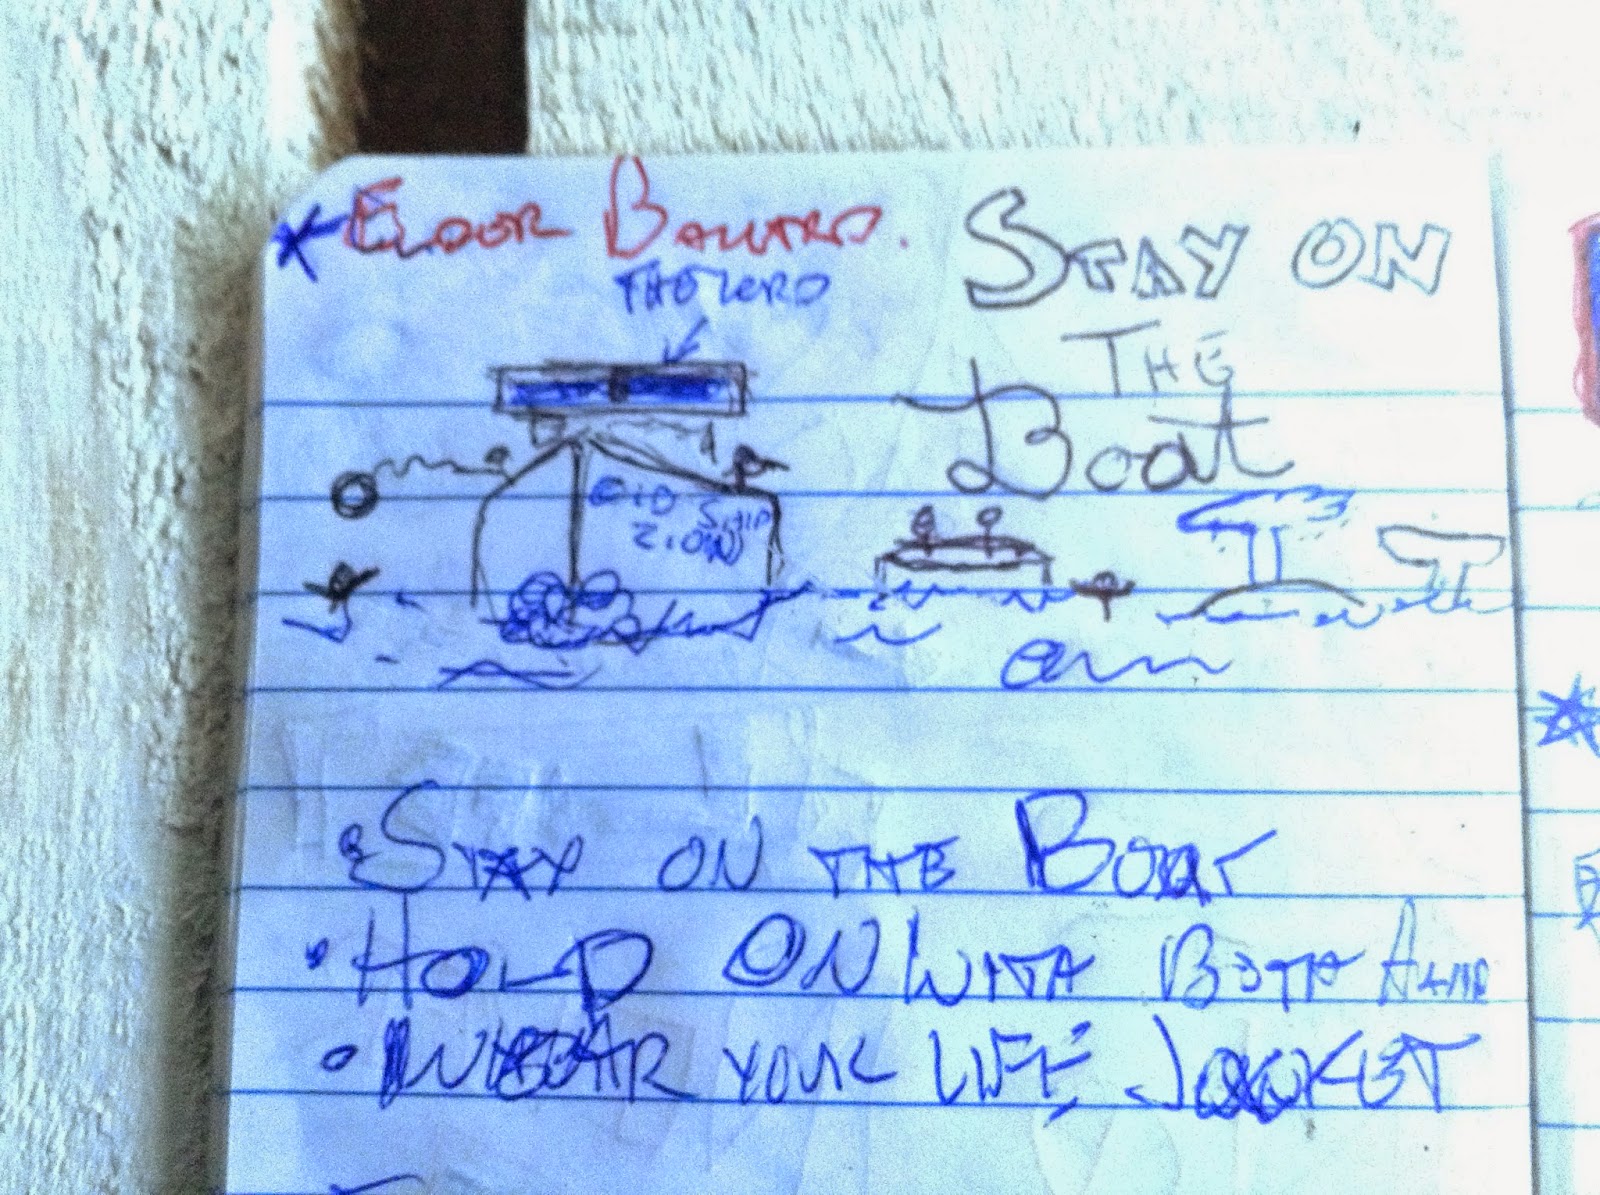 STAY ON
THE
Boat
THE LORD
OLD SHIP
ZION
STAY ON THE BOAT
HOLD ON WITH BOTH
WEAR YOUR LIFE JACKET